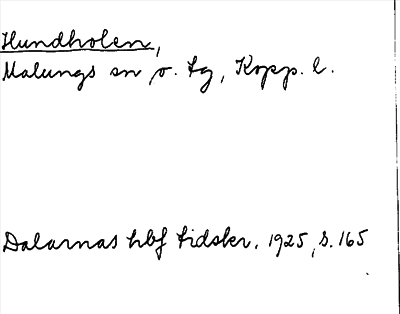 Hundholen,
Malungs sn o. tg, Kopp. l.
Dalarnas hbf tidskr. 1925, s. 165